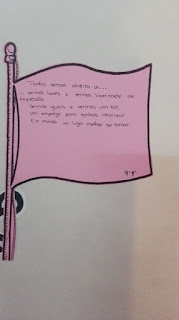 Todos temos direito a...
... sermos livres e termos liberdade de
expressão
Sermos iguais e termos um lar,
um emprego para sonhos realizar
E o mundo um lugar melhor se tornar.
7º1ª